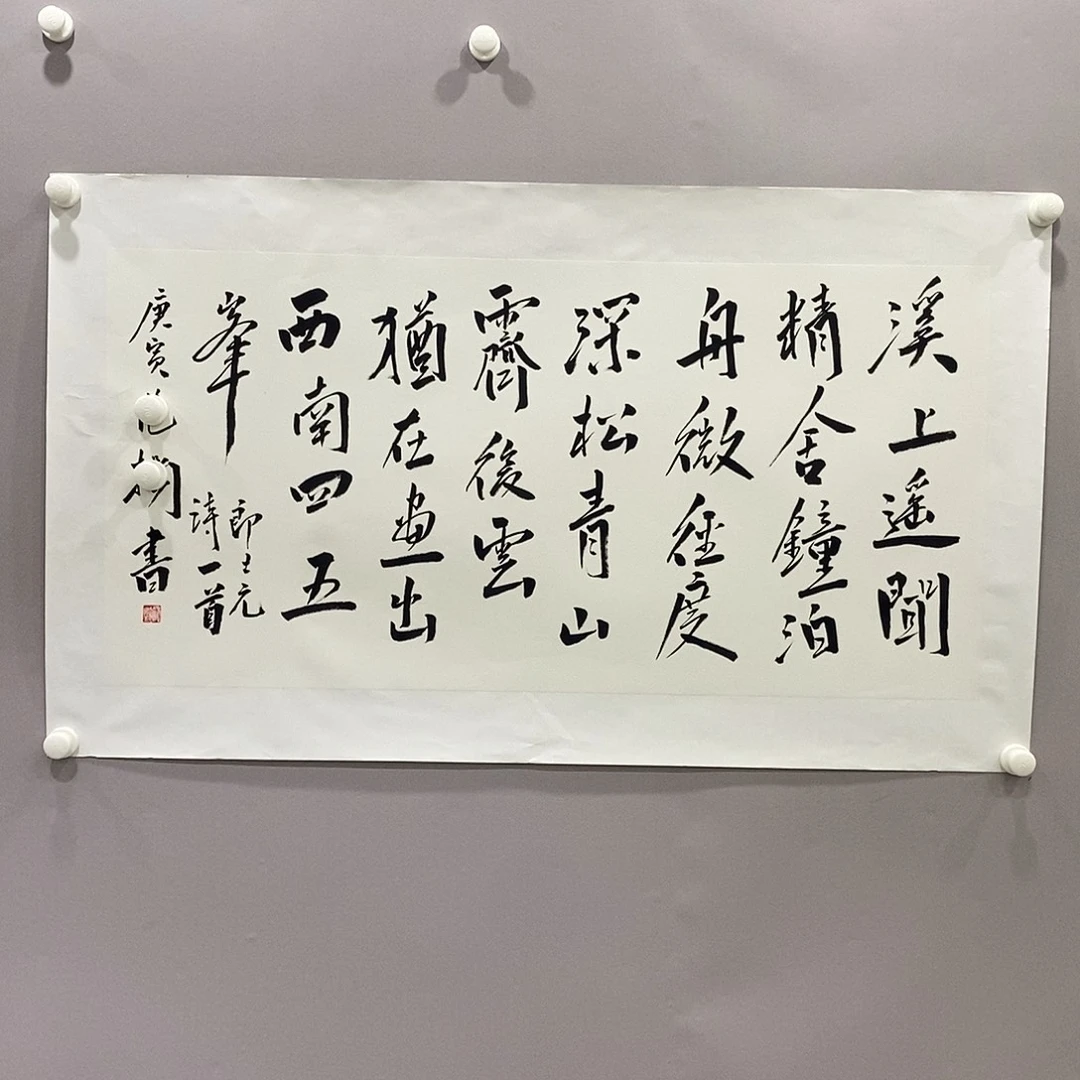 溪上遥聞
精舍鐘泊
舟微徑度
深松青山
霽後雲
猶在畫出
西南四五
峯
郎士元
詩一首
庚寅
書